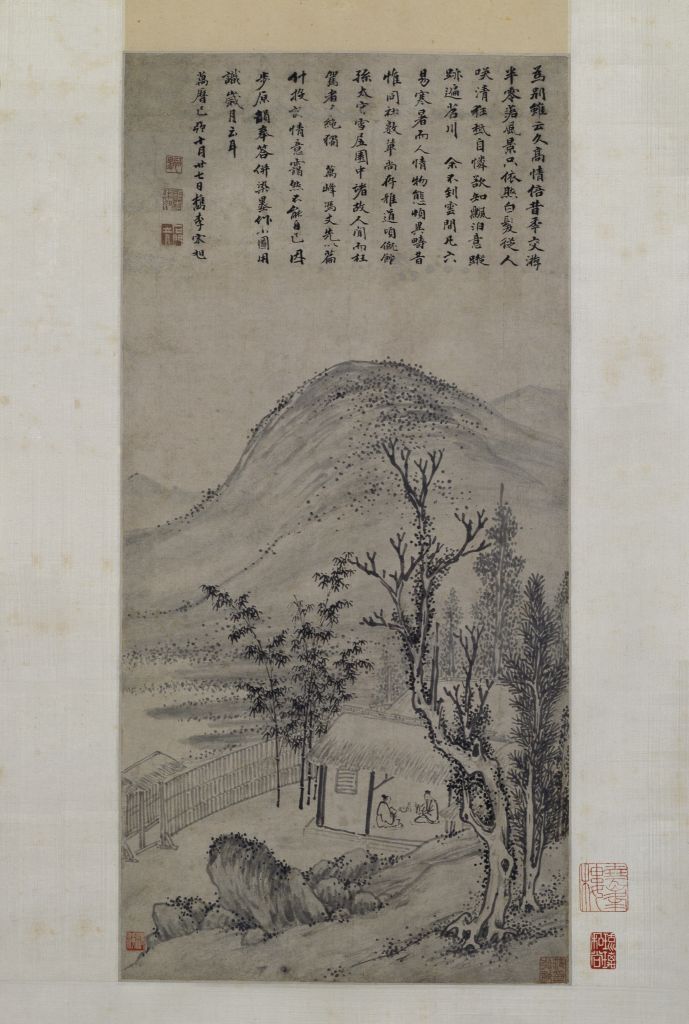 為別雖云久高情倍昔年交游
半零落風景只依然白髮從人
咲清狂秪自憐欲知飄泊意蹤
跡遍 川 余不到雲間凡六
易寒暑而人情物態頓異疇昔
惟同社數輩尚存雅道頃
孫太守雪居園中諸故人聞而枉
駕者 獨 萬峰馮丈先以篇
什投 情意靄然不能自已因
步原韻奉答併染墨作小圖用
識歲月云耳
萬曆己亥十月廿七日檇李宋旭